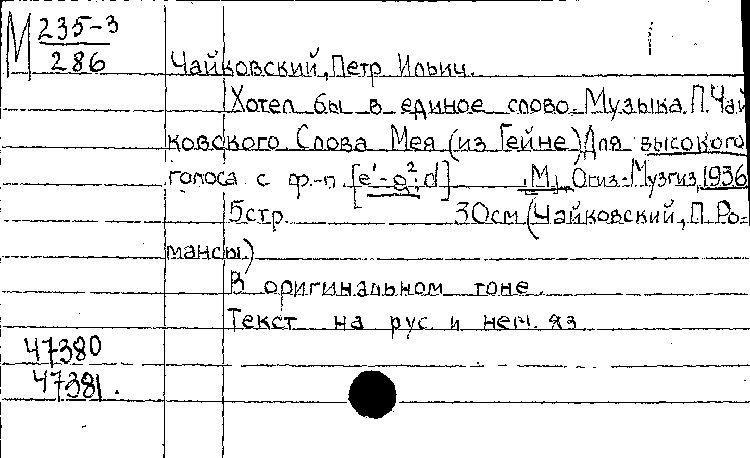 М 235-3
286
Чайковский, Петр Ильич.
Хотел бы в единое слово. Музыка П. Чай
ковского Слова Мея (из Гейне) Для высокого
голоса с ф.-п. [e'-g²; d] М., Огиз-Музгиз, 1936
5стр. 30см (Чайковский, П. Ро-
мансы.)
В оригинальном тоне.
Текст на рус. и нем. яз
47380
47381.